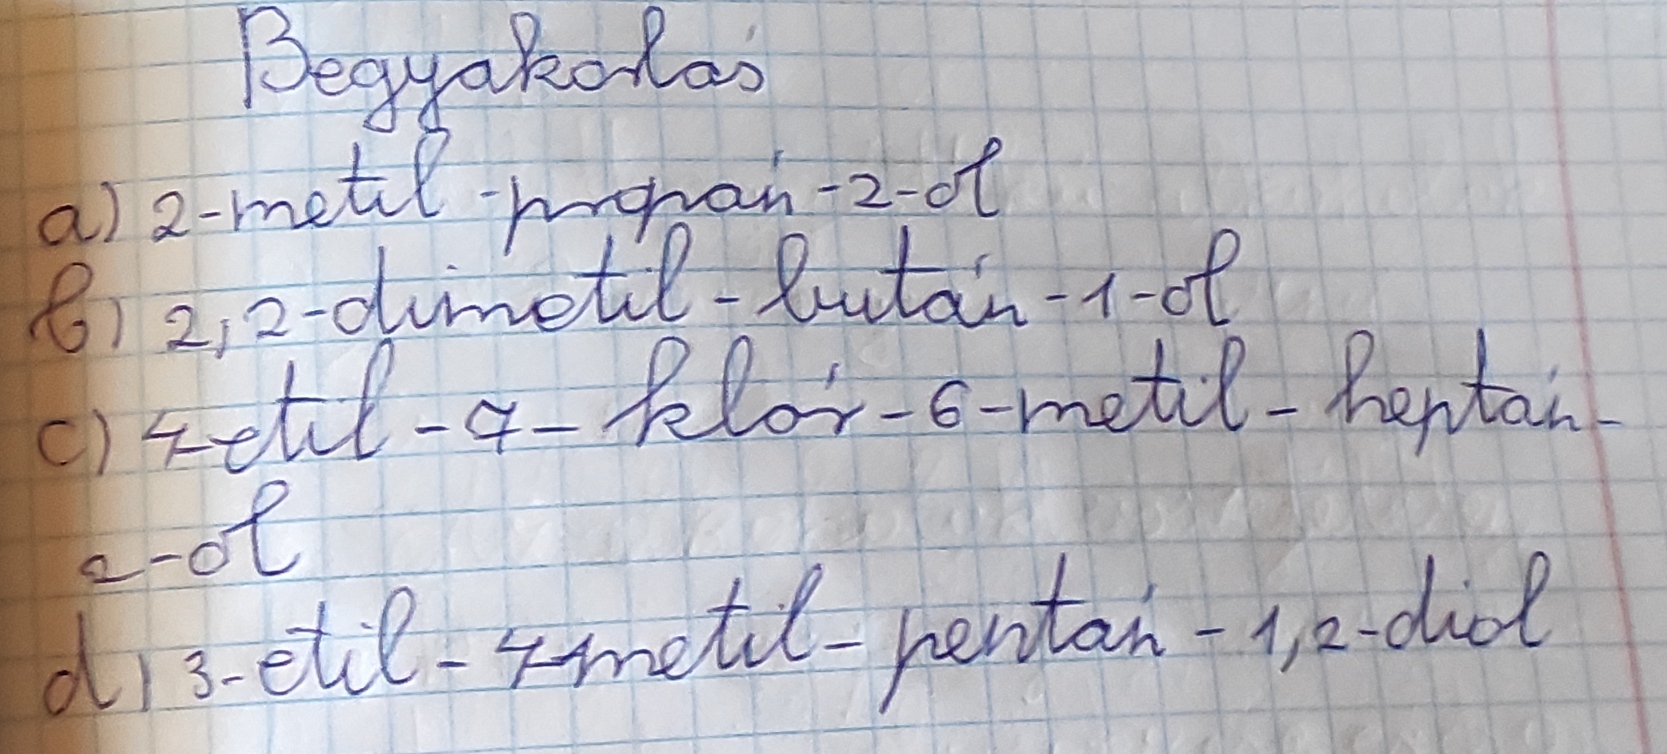 Begyakorlás
a) 2-metil-propán-2-ol
b) 2,2-dimetil-bután-1-ol
c) 4-etil-7-klór-6-metil-heptán-
2-ol
d) 3-etil-4-metil-pentán-1,2-diol